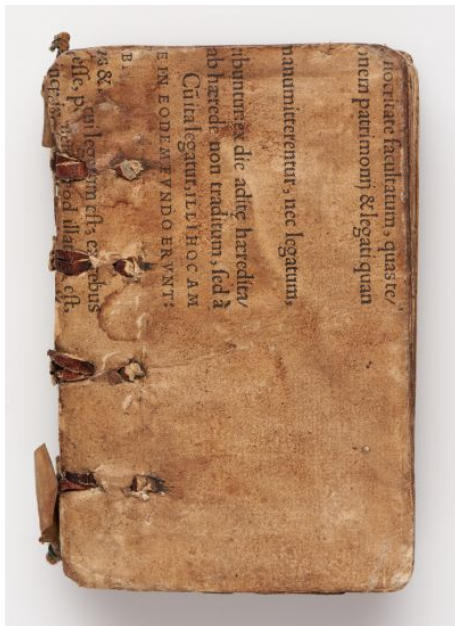 facultatum, quas te/
onem patrimonij & legati, quan
manumitterentur, nec legatum,
ribuntur: ex die aditę hæredita/
ab hærede non traditum, ſed à
Cui ita legatur, ILLI HOC AM
E IN EODEM FVNDO ERVNT:
&
qui legatum eſt, ex rebus
eſſe, quod illatum eſt,